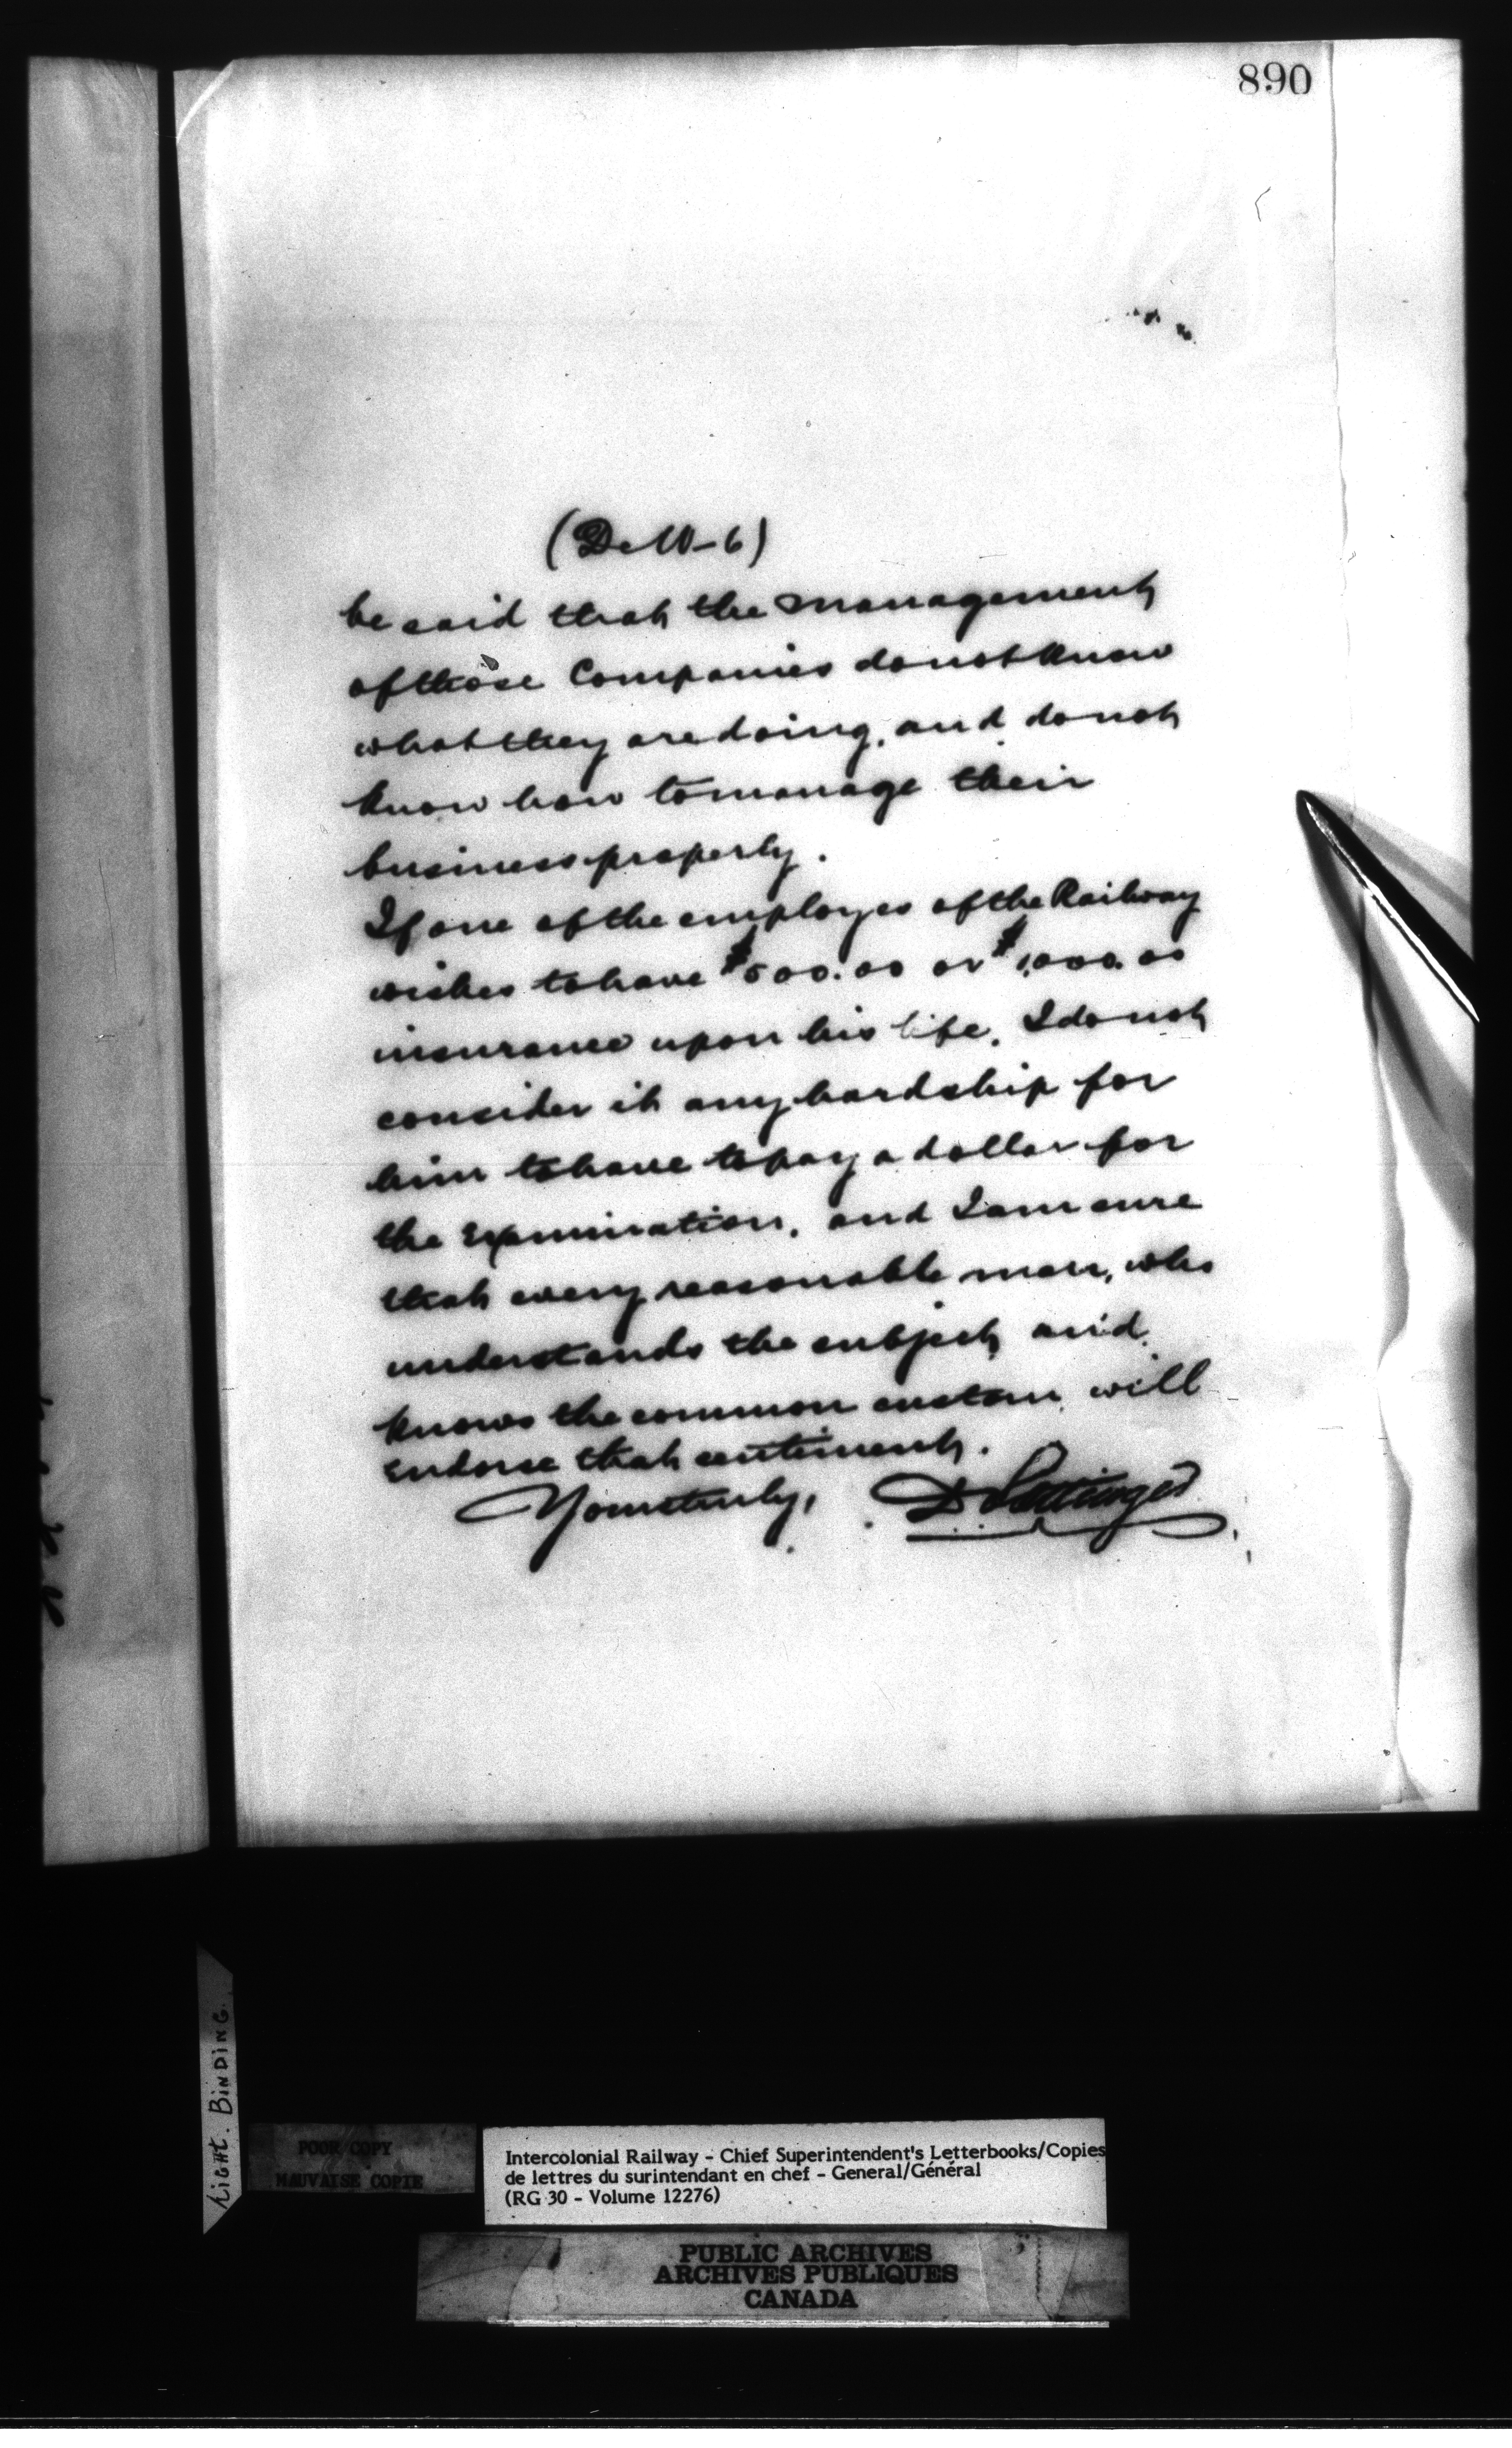 890
(DeW-6)
be said that the management
of those Companies do not know
what they are doing, and do not
know how to manage their
business properly.
If one of the employes of the Railway
wishes to have $500.00 or $1,000.00
insurance upon his life, I do not
consider it any hardship for
him to have to pay a dollar for
the Examination, and I am sure
that every reasonable man, who
understands the subject, and
knows the common custom, will
endorse that sentiment.
Yours truly, D Pottinger
Light. Binding.
POOR COPY
MAUVAISE COPIE
Intercolonial Railway - Chief Superintendent's Letterbooks/Copies
de lettres du surintendant en chef - General/Général
(RG 30 - Volume 12276)
PUBLIC ARCHIVES
ARCHIVES PUBLIQUES
CANADA